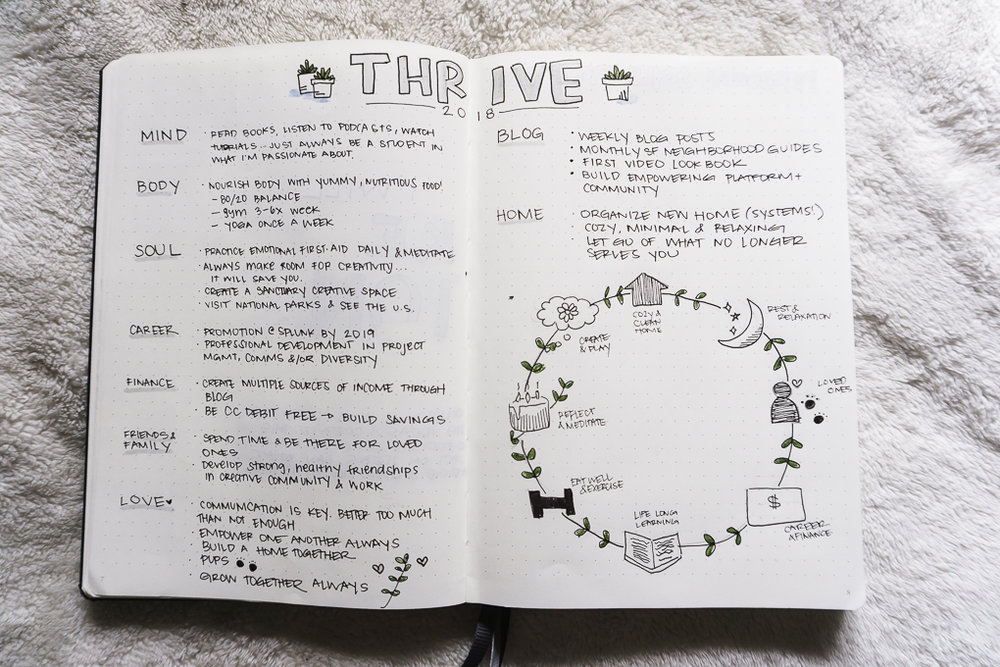 THRIVE
2018
MIND
· READ BOOKS, LISTEN TO PODCASTS, WATCH
TUTORIALS...JUST ALWAYS BE A STUDENT IN
WHAT I'M PASSIONATE ABOUT.
BODY
· NOURISH BODY WITH YUMMY, NUTRITIOUS FOOD!
- 80/20 BALANCE
- gym 3-6x WEEK
- YOGA ONCE A WEEK
SOUL
· PRACTICE EMOTIONAL FIRST-AID DAILY & MEDITATE
· ALWAYS MAKE ROOM FOR CREATIVITY...
IT WILL SAVE YOU.
· CREATE A SANCTUARY CREATIVE SPACE
· VISIT NATIONAL PARKS & SEE THE U.S.
CAREER
· PROMOTION @ SPLUNK BY 2019
· PROFESSIONAL DEVELOPMENT IN PROJECT
MGMT, COMMS &/OR DIVERSITY
FINANCE
· CREATE MULTIPLE SOURCES OF INCOME THROUGH
BLOG
· BE CC DEBIT FREE → BUILD SAVINGS
FRIENDS &
FAMILY
· SPEND TIME & BE THERE FOR LOVED
ONES
· Develop strong, healthy friendships
in CREATIVE COMMUNITY & WORK
LOVE♥
· COMMUNICATION IS KEY. BETTER TOO MUCH
THAN NOT ENOUGH
· EMPOWER ONE ANOTHER ALWAYS
· BUILD A HOME TOGETHER
· PUPS
· GROW TOGETHER ALWAYS
BLOG
• WEEKLY BLOG POSTS
• MONTHLY SF NEIGHBORHOOD GUIDES
• FIRST VIDEO LOOKBOOK
• BUILD EMPOWERING PLATFORM +
COMMUNITY
HOME
· ORGANIZE NEW HOME (SYSTEMS!)
· COZY, MINIMAL & RELAXING
· LET GO OF WHAT NO LONGER
SERVES YOU
COZY &
CLEAN
HOME
REST &
RELAXATION
LOVED
ONES
$
CAREER
& FINANCE
LIFE LONG
LEARNING
EAT WELL
& EXERCISE
REFLECT
& MEDITATE
CREATE
& PLAY